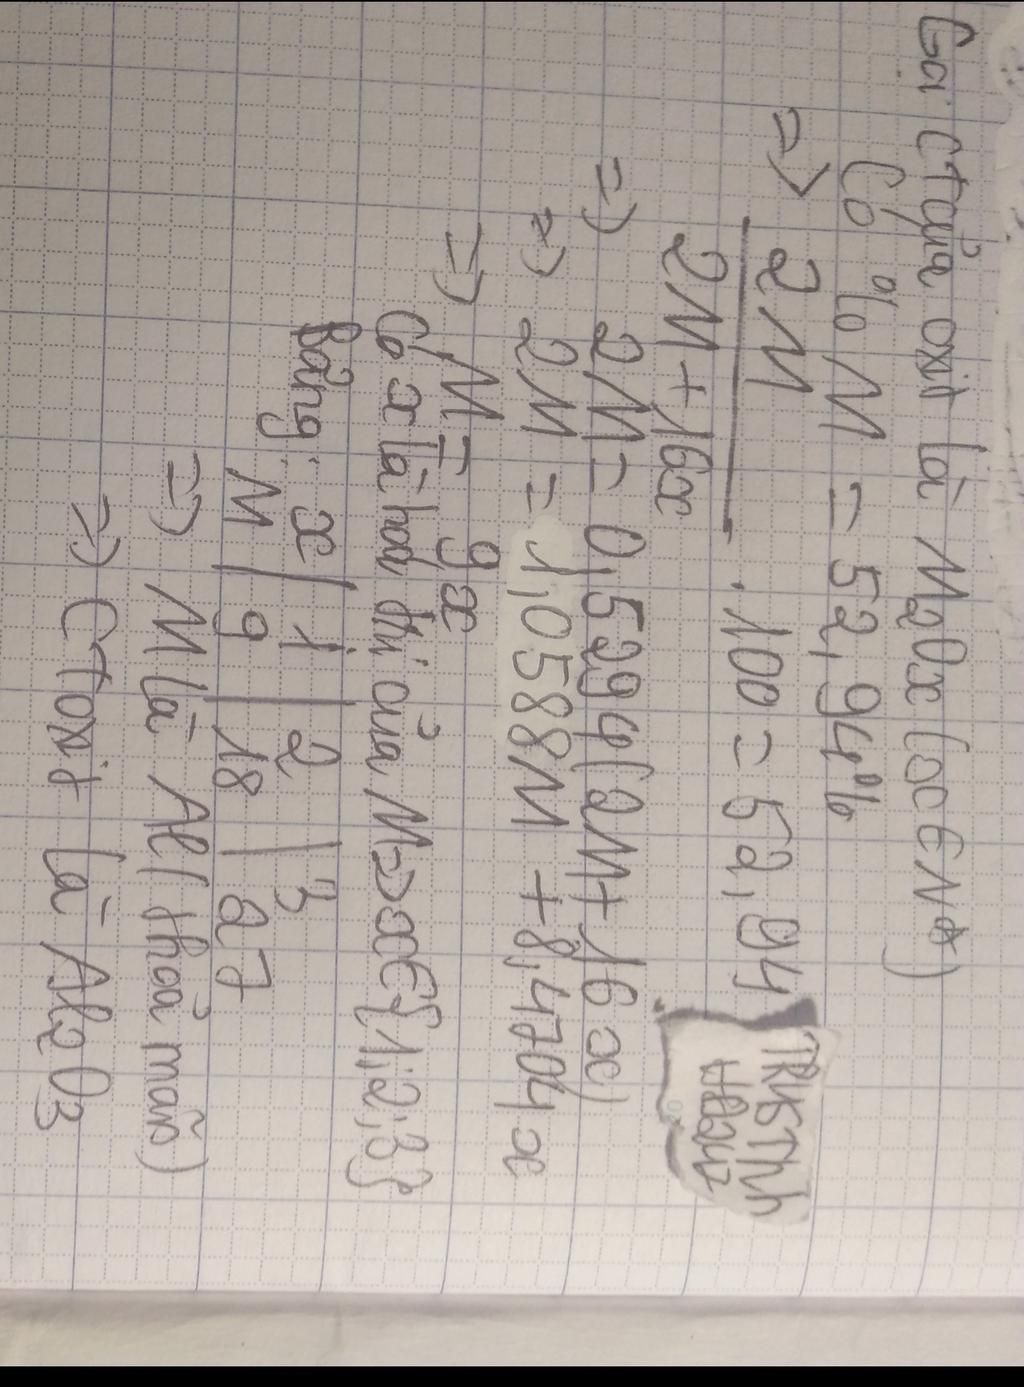 Gọi ctqủa oxit là M2Ox (x ∈ N*)
Có %M = 52,94%
=> 2M / 2M + 16x . 100 = 52,94
=> 2M = 0,5294(2M + 16x)
=> 2M = 1,0588M + 8,4704x
=> M = 9x
Có x là hoá trị của M => x ∈ {1,2,3}
Bảng: x | 1 | 2 | 3
M | 9 | 18 | 27
=> M là Al (thoả mãn)
=> CT oxit là Al2O3